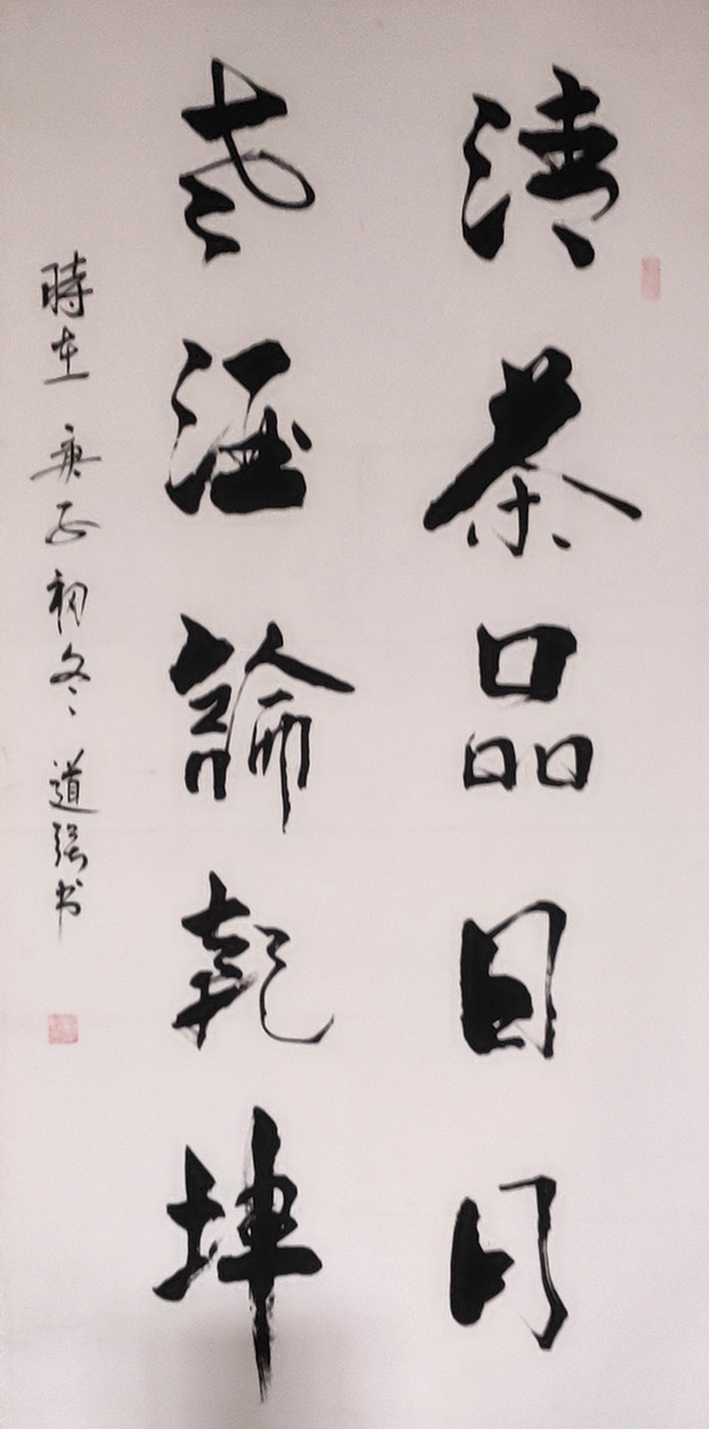 清茶品日月
老酒論乾坤
時在庚子初冬道强书